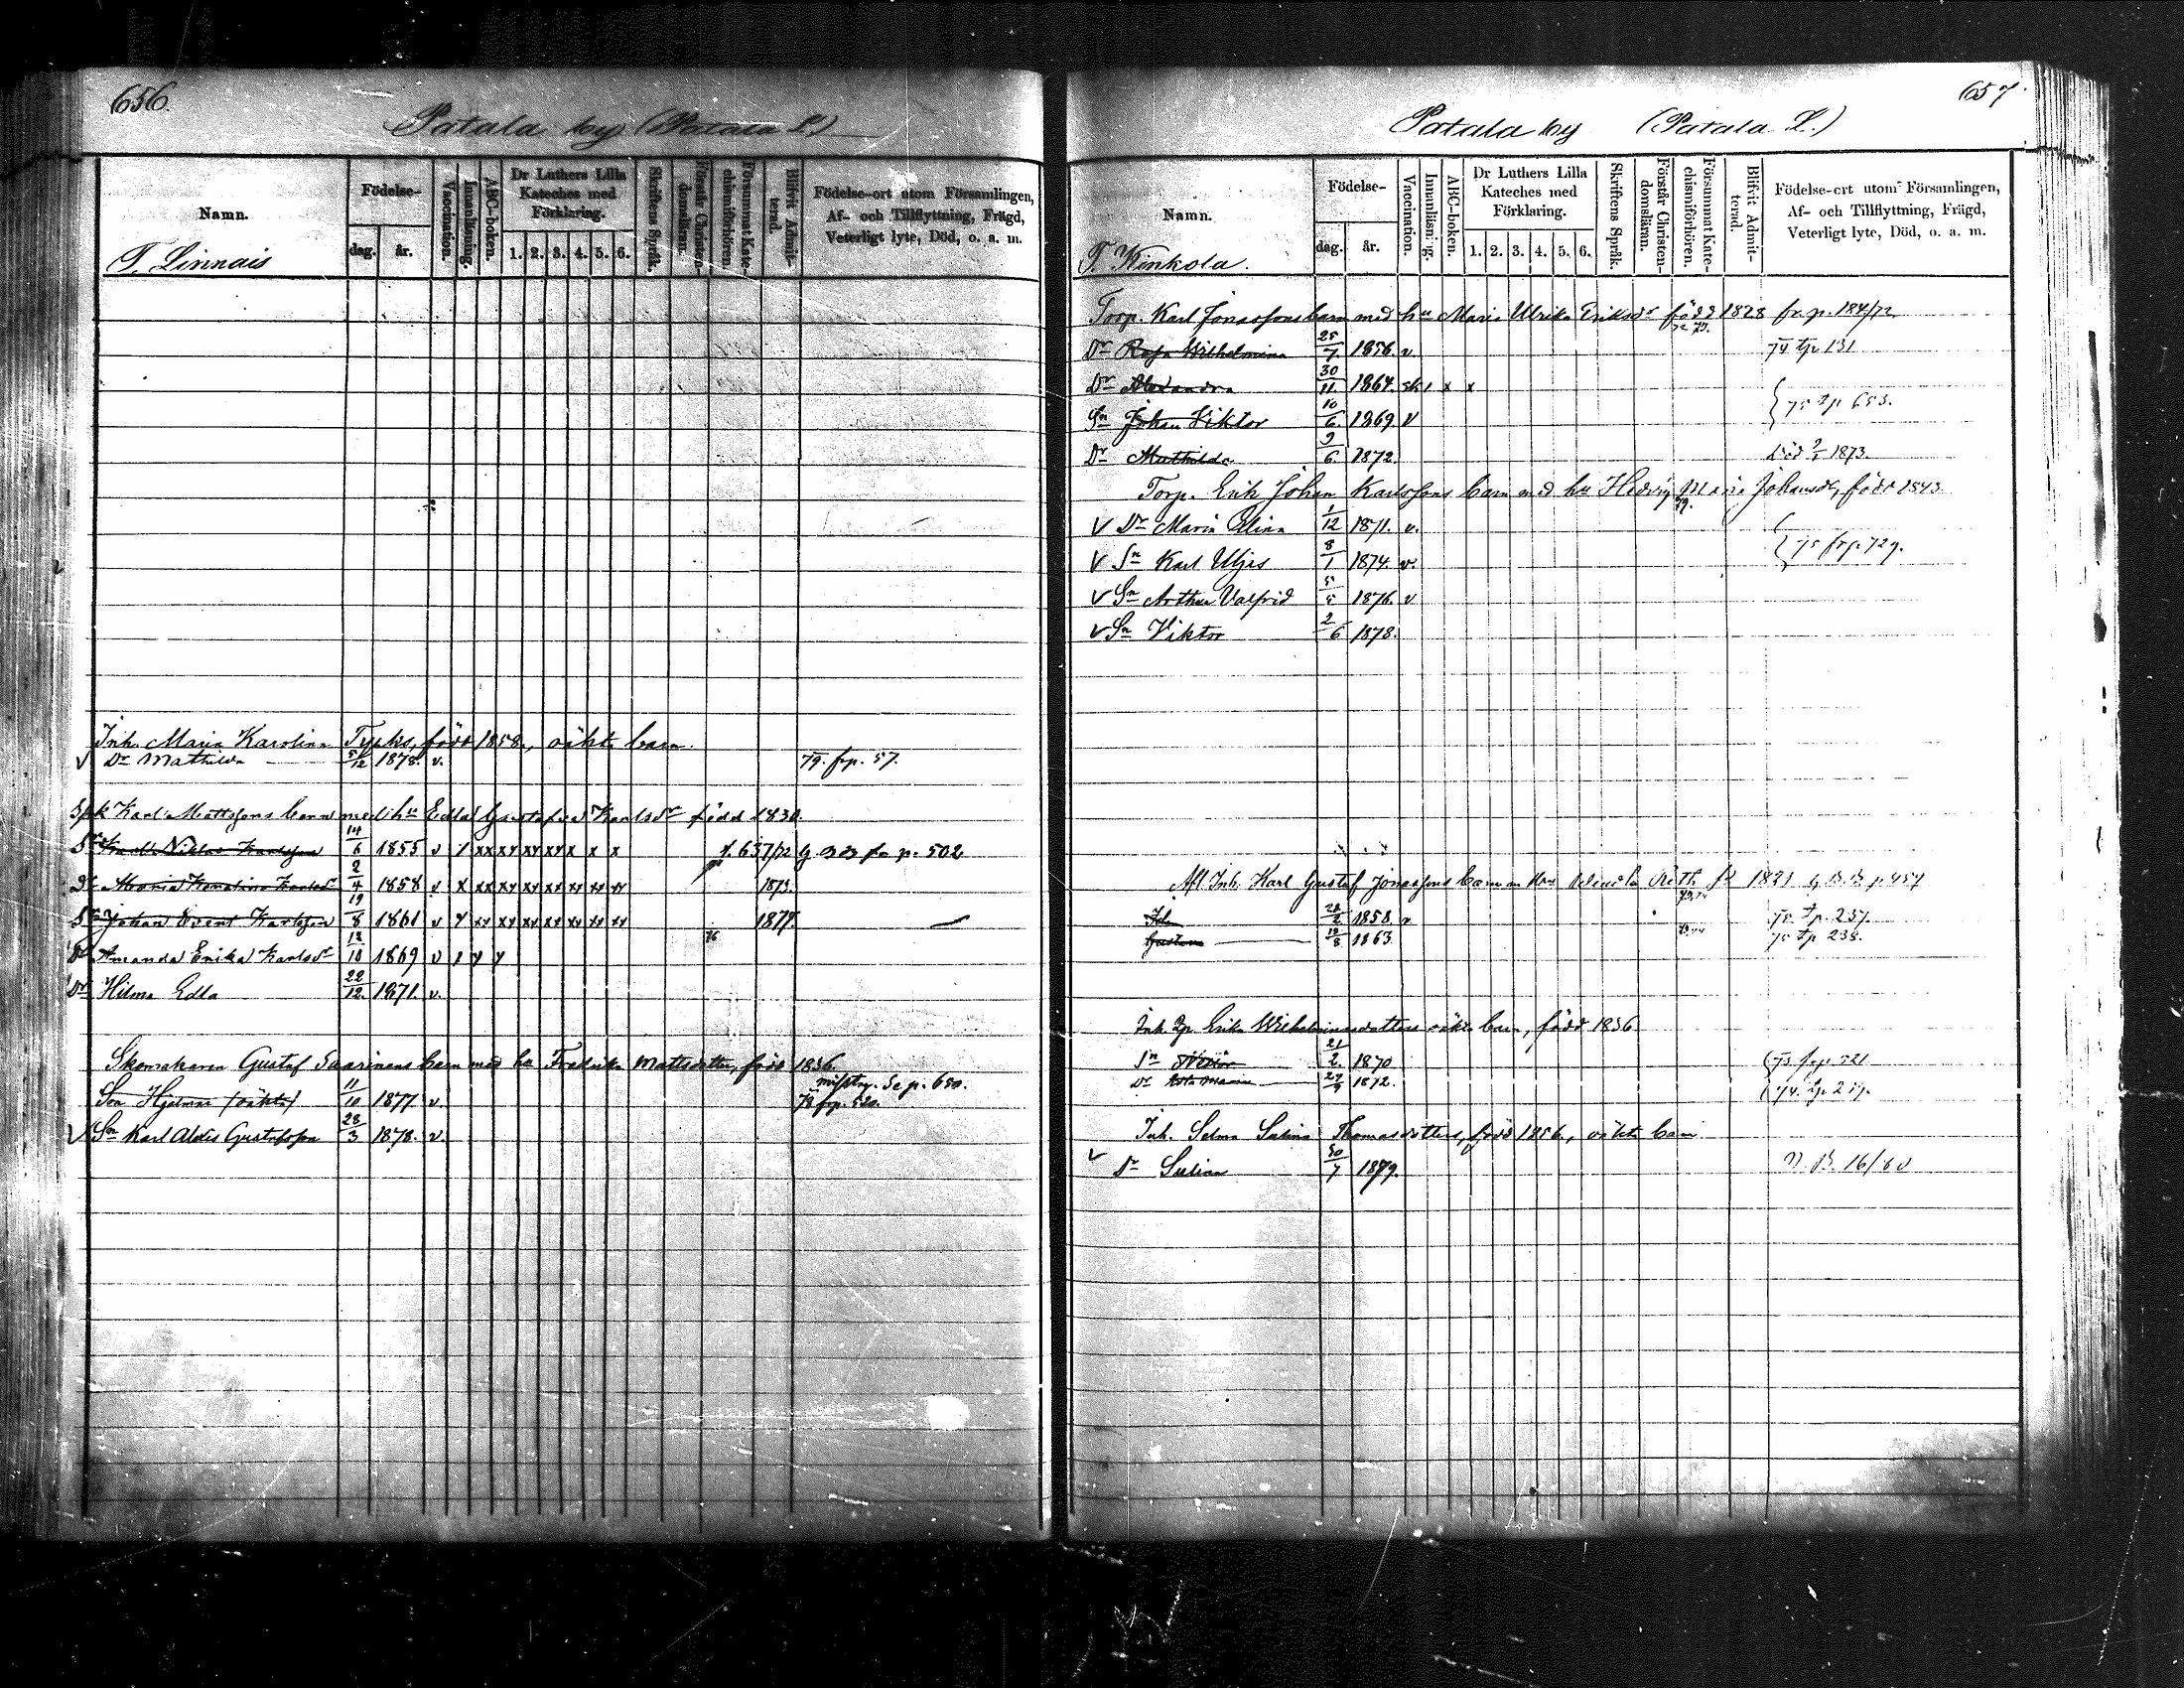 656.
Patala by (Patala L.)
Namn.
Födelse-
dag.
år.
Vaccination.
Innanläsning.
ABC-boken.
Dr Luthers Lilla Kateches med Förklaring.
1. 2. 3. 4. 5. 6.
Skriftens Språk.
Förstår Christendomsläran.
Försummat Katechismiförhören.
Blifvit Admitterad.
Födelse-ort utom Församlingen,
Af- och Tillflyttning, Frägd,
Veterligt lyte, Död, o. a. m.
T. Linnais
Inh. Maria Karolina född 1858, oäkta barn
v Dr Mathilda 5/12 1878. v. 79. frp. 57.
Karl Mattssons barn med hu Edla Gustafva Karlsdr född 1830.
Sn Karl Niklas Karlsson 14/6 1855 v / xx xy xy xy x x x f. 637/72 fr p. 502
Dr Maria Karolina Karlsdr 2/4 1858 v x xx xy xy xy xy xy xy 1873.
Sn Johan Evert Karlsson 19/8 1861 v y xy xy xy xy xy xy xy 1877.
Dr Amanda Erika Karlsdr 12/10 1869 v y y
Dr Hilma Edla 22/12 1871. v.
Skomakaren Gustaf Saarinens barn med hu Fredrika Mattsdotter, född 1836.
Son Hjalmar (oäkta) 11/10 1877 v. Se p. 650. 78 frp. 520.
v Sn Karl Aldis Gustafsson 28/3 1878. v
657.
Patala by (Patala L.)
Namn.
Födelse-
dag.
år.
Vaccination.
Innanläsning.
ABC-boken.
Dr Luthers Lilla Kateches med Förklaring.
1. 2. 3. 4. 5. 6.
Skriftens Språk.
Förstår Christendomsläran.
Försummat Katechismiförhören.
Blifvit Admitterad.
Födelse-ort utom Församlingen,
Af- och Tillflyttning, Frägd,
Veterligt lyte, Död, o. a. m.
T. Kinkola.
Torp. Karl Jonassons barn med hu Maria Ulrika Eriksdr född 1828 fr. p. 184/72
Dr Rosa Wilhelmina 25/7 1856 v 74 tp 131
Dr Alexandra 30/11 1864. x x
Sn Johan Viktor 10/6 1869 v 75 tp 653.
Dr Mathilda 9/6 1872. 1873.
Torp. Erik Johan Karlssons barn m d hu Hedvig Maria Johansdr, född 1843
v Dr Maria Alina 1/12 1871. v.
v Sn Karl Uljas 8/1 1874. v. 75 frp. 729.
v Sn Arthur Valfrid 5/5 1876. v
v Sn Viktor 2/6 1878.
Afl. Inh. Karl Gustaf Jonassons barn 1821 p. 457
28/2 1858. v 75 tp. 237.
Gustava 19/8 1863 75 tp 238.
Inh. Erika Wilhelminasdotters oäkta barn, född 1836
Sn 21/2 1870 frp 521
Dr 1872. 74. tp 217.
Inh. Selma Sabina Thomasdotters, född 1856, oäkta barn
v Dr 30/7 1879. 16/80